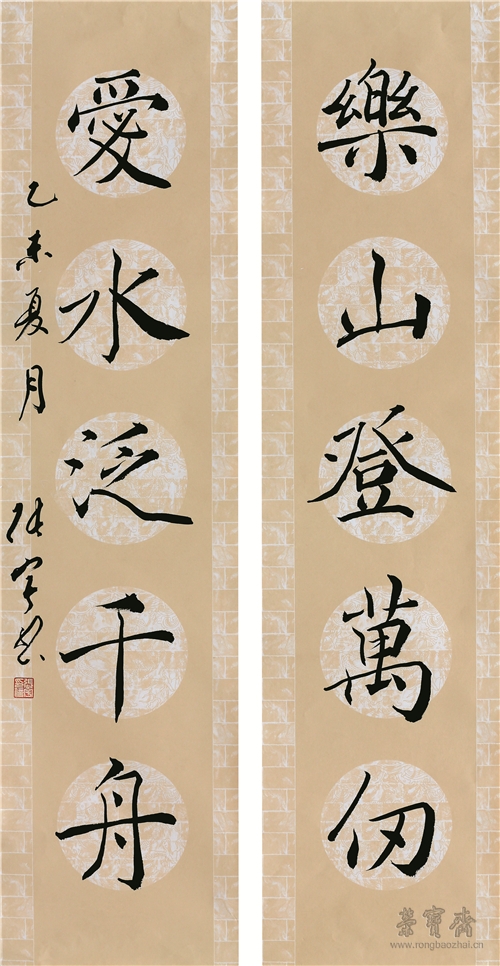 樂山登萬仞
愛水泛千舟
乙未夏月
榮寶齋
www.rongbaozhai.cn